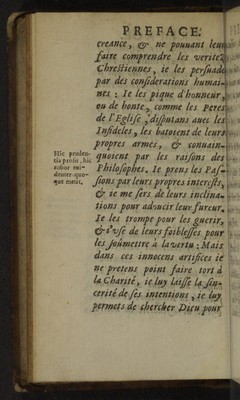 PREFACE.
creance, & ne pouuant leur
faire comprendre les veritez
Chrestiennes, ie les persuade
par des considerations humai-
nes : Ie les pique d'honneur,
ou de honte, comme les Peres
de l'Eglise, disputans auec les
Infideles, les batoient de leurs
propres armes, & conuain-
quoient par les raisons des
Philosophes. Ie prens les Pas-
sions par leurs propres interests,
& ie me sers de leurs inclina-
tions pour adoucir leur fureur.
Ie les trompe pour les guerir,
& i'vse de leurs foiblesses pour
les soûmettre à la vertu : Mais
dans ces innocens artifices ie
ne pretens point faire tort à
la Charité, ie luy laisse la sin-
cerité de ses intentions, ie luy
permets de chercher Dieu pour
Hic pruden-
tia